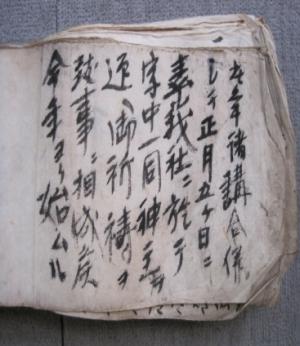 年諸講合併
シテ正月五ケ日ニ
素我社ニ於テ
中一同神主ヲ
迎御祈祷ヲ
致事ニ相成候
今年ヨリ始ムル